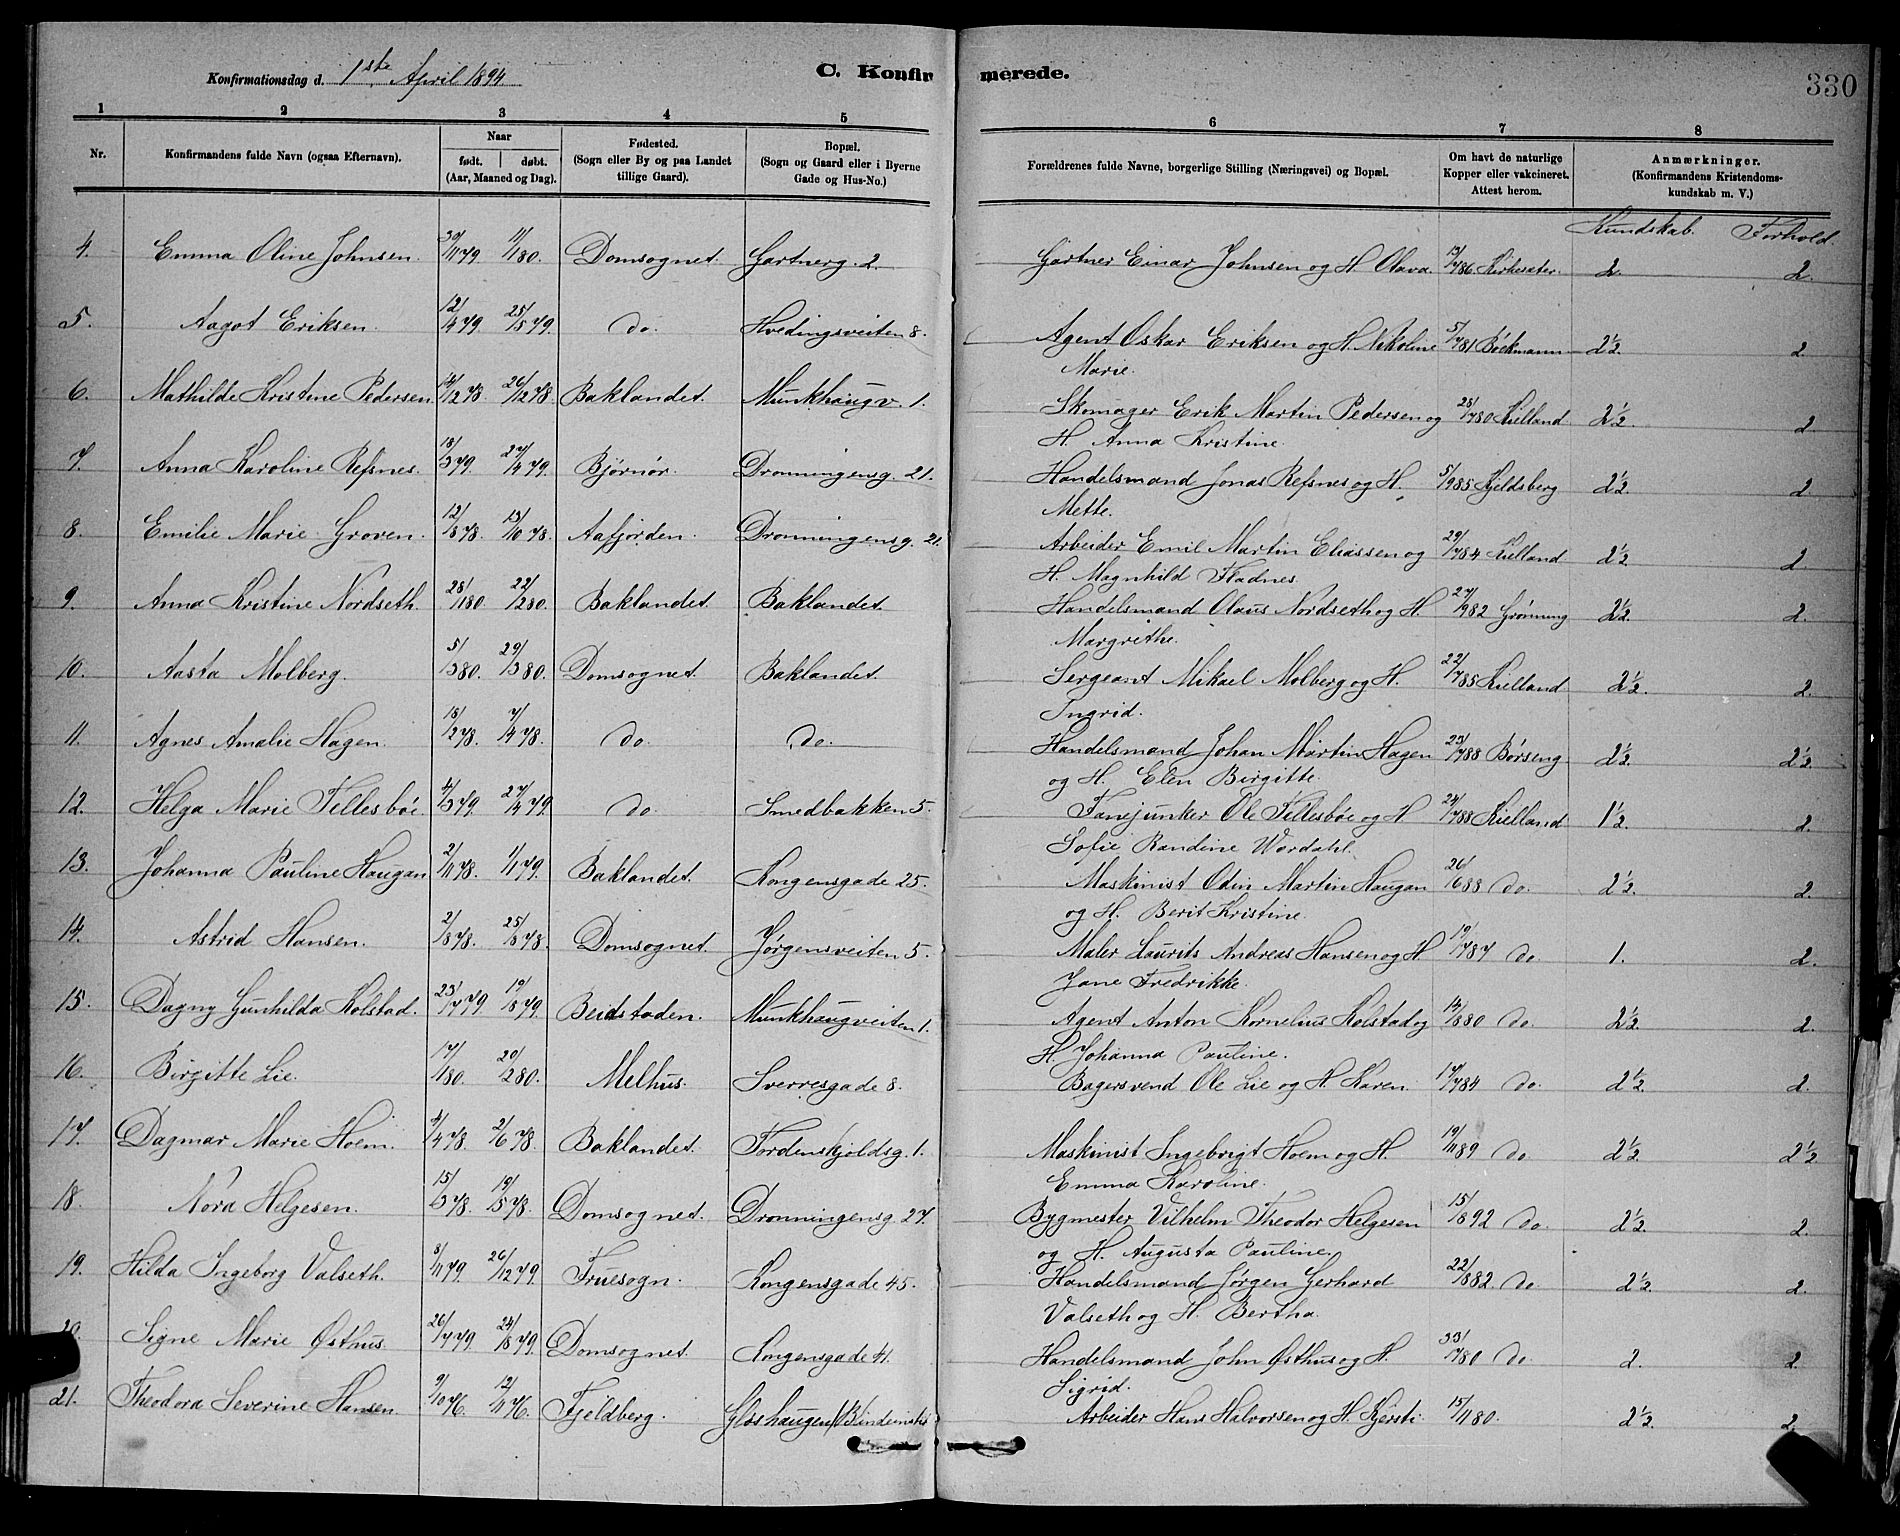 Konfirmationsdag d. 1ste April 1894
C. Konfirmerede.
330
1 2 3 4 5 6 7 8
Nr.
Konfirmandens fulde Navn (ogsaa Efternavn).
Naar
født. døbt.
(Aar, Maaned og Dag).
Fødested.
(Sogn eller By og paa Landet
tillige Gaard).
Bopæl.
(Sogn og Gaard eller i Byerne
Gade og Hus-No.)
Forældrenes fulde Navne, borgerlige Stilling (Næringsvei) og Bopæl.
Om havt de naturlige
Kopper eller vakcineret.
Attest herom.
Anmærkninger.
(Konfirmandens Kristendoms-
kundskab m. V.)
Kundskab. Forhold.
4. Emma Oline Johnsen. 30/11 79. 11/1 80. Domsognet. Gartnerg. 2. Gartner Einar Johnsen og H. Olava. 13/7 86. Kirkesæter. 2. 2.
5. Aagot Eriksen. 12/4 79. 25/5 79. do. Hvedingsveiten 8. Agent Oskar Eriksen og H. Nikoline 5/7 81 Bøckmann 2½. 2.
Marie.
6. Mathilde Kristine Pedersen. 14/12 78. 26/12 78. Baklandet. Munkhaugv. 1. Skomager Erik Martin Pedersen og 28/7 80 Kielland 2½. 2
H. Anna Kristine.
7. Anna Karoline Refsnes. 18/3 79. 27/4 79. Bjørnør. Dronningensg. 21. Handelsmand Jonas Refsnes og H. 5/9 85 Kjeldsberg 2½. 2
Mette.
8. Emilie Marie Groven. 12/8 78. 13/10 78. Aafjorden. Dronningensg. 21. Arbeider Emil Martin Eliassen og 29/7 84 Kielland 2½ 2.
H. Magnhild Fladnes.
9. Anna Kristine Nordseth. 28/1 80. 22/2 80. Baklandet. Baklandet. Handelsmand Olaus Nordseth og H. 27/9 82 Grønning 2½. 2.
Margrethe.
10. Aasta Molberg. 5/3 80. 29/3 80. Domsognet. Baklandet. Sergeant Mikael Molberg og H. 22/7 85 Kielland 2½. 2.
Ingrid.
11. Agnes Amalie Hagen. 18/2 78. 7/4 78. do. do. Handelsmand Johan Martin Hagen 23/7 88 Børseng 2½. 2½.
og H. Elen Birgitte.
12. Helga Marie Fillesbøe. 4/3 79. 27/4 79. do. Smedbakken 5. Fanejunker Ole Fillesbøe og H 24/7 88 Kielland 1½. 2.
Sofie Randine Wordahl.
13. Johanna Pauline Haugan 2/11 78. 1/1 79. Baklandet. Kongensgade 25. Maskinist Odin Martin Haugan 26/6 88 do. 2½. 2.
og H. Berit Kristine.
14. Astrid Hansen. 2/8 78. 25/8 78. Domsognet. Jørgensveiten 5. Maler Laurits Andreas Hansen og H 19/7 87 do. 1. 2.
Jane Fredrikke.
15. Dagny Gunhilda Kolstad. 23/7 79. 19/8 79. Beidstaden. Munkhaugveiten 1. Agent Anton Kornelius Kolstad og 14/8 80 do. 2½ 2.
H. Johanna Pauline.
16. Birgitte Lie. 17/1 80. 20/2 80. Melhus. Sverresgade 8. Bagersvend Ole Lie og H. Karen. 17/7 84 do. 2½. 2.
17. Dagmar Marie Hoem. 4/4 78. 2/6 78. Baklandet. Tordenskjoldsg. 1. Maskinist Ingebrigt Hoem og H. 19/11 89 do. 2½. 2½
Emma Karoline.
18. Nora Helgesen. 15/3 78. 19/5 78. Domsognet. Dronningensg. 27. Bygmester Vilhelm Theodor Helgesen 15/8 92 do. 2½. 2.
og H. Augusta Pauline.
19. Hilda Ingeborg Valseth. 8/11 79. 26/12 79. Fruesogn. Kongensgade 45. Handelsmand Jørgen Gerhard 22/8 82 do. 2½. 2.
Valseth og H. Bertha.
20. Signe Marie Østhus. 26/7 79. 24/8 79. Domsognet. Kongensgade 41. Handelsmand John Østhus og H. 7 80 do. 2. 2
Sigrid.
21. Theodora Severine Hansen. 9/10 76. 12/11 76. Fjeldberg. Gløshaugen Arbeider Hans Halvorsen og H. Kjersti. 15/11 80. 2½. 2.